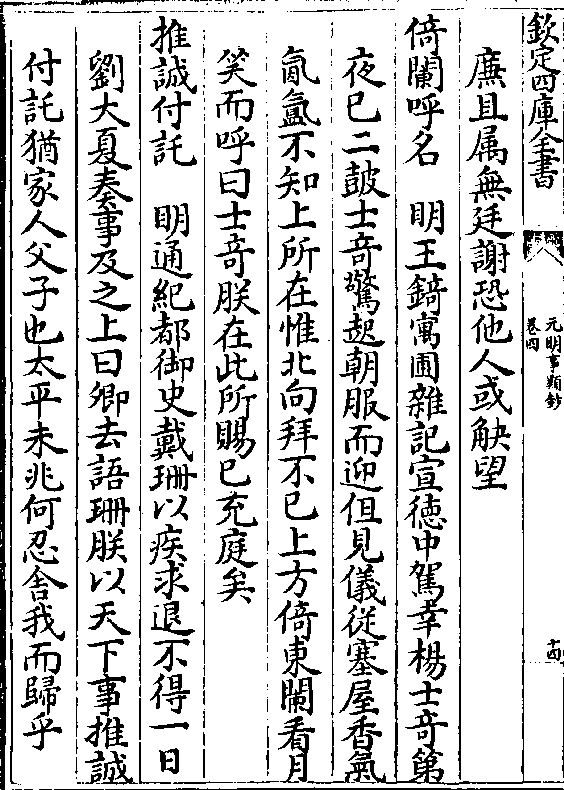 欽定四庫全書
元明事類鈔
卷四
十四
廡且属無廷謝恐他人或觖望
倚闌呼名　明王錡寓圃雜記宣徳中駕幸楊士竒第
夜已二鼓士竒驚起朝服而迎但見儀從塞屋香氣
氤氲不知上所在惟北向拜不已上方倚東闌看月
笑而呼曰士竒朕在此所賜已充庭矣
推誠付託　明通紀都御史戴珊以疾求退不得一日
劉大夏奏事及之上曰卿去語珊朕以天下事推誠
付託猶家人父子也太平未兆何忍舍我而歸乎